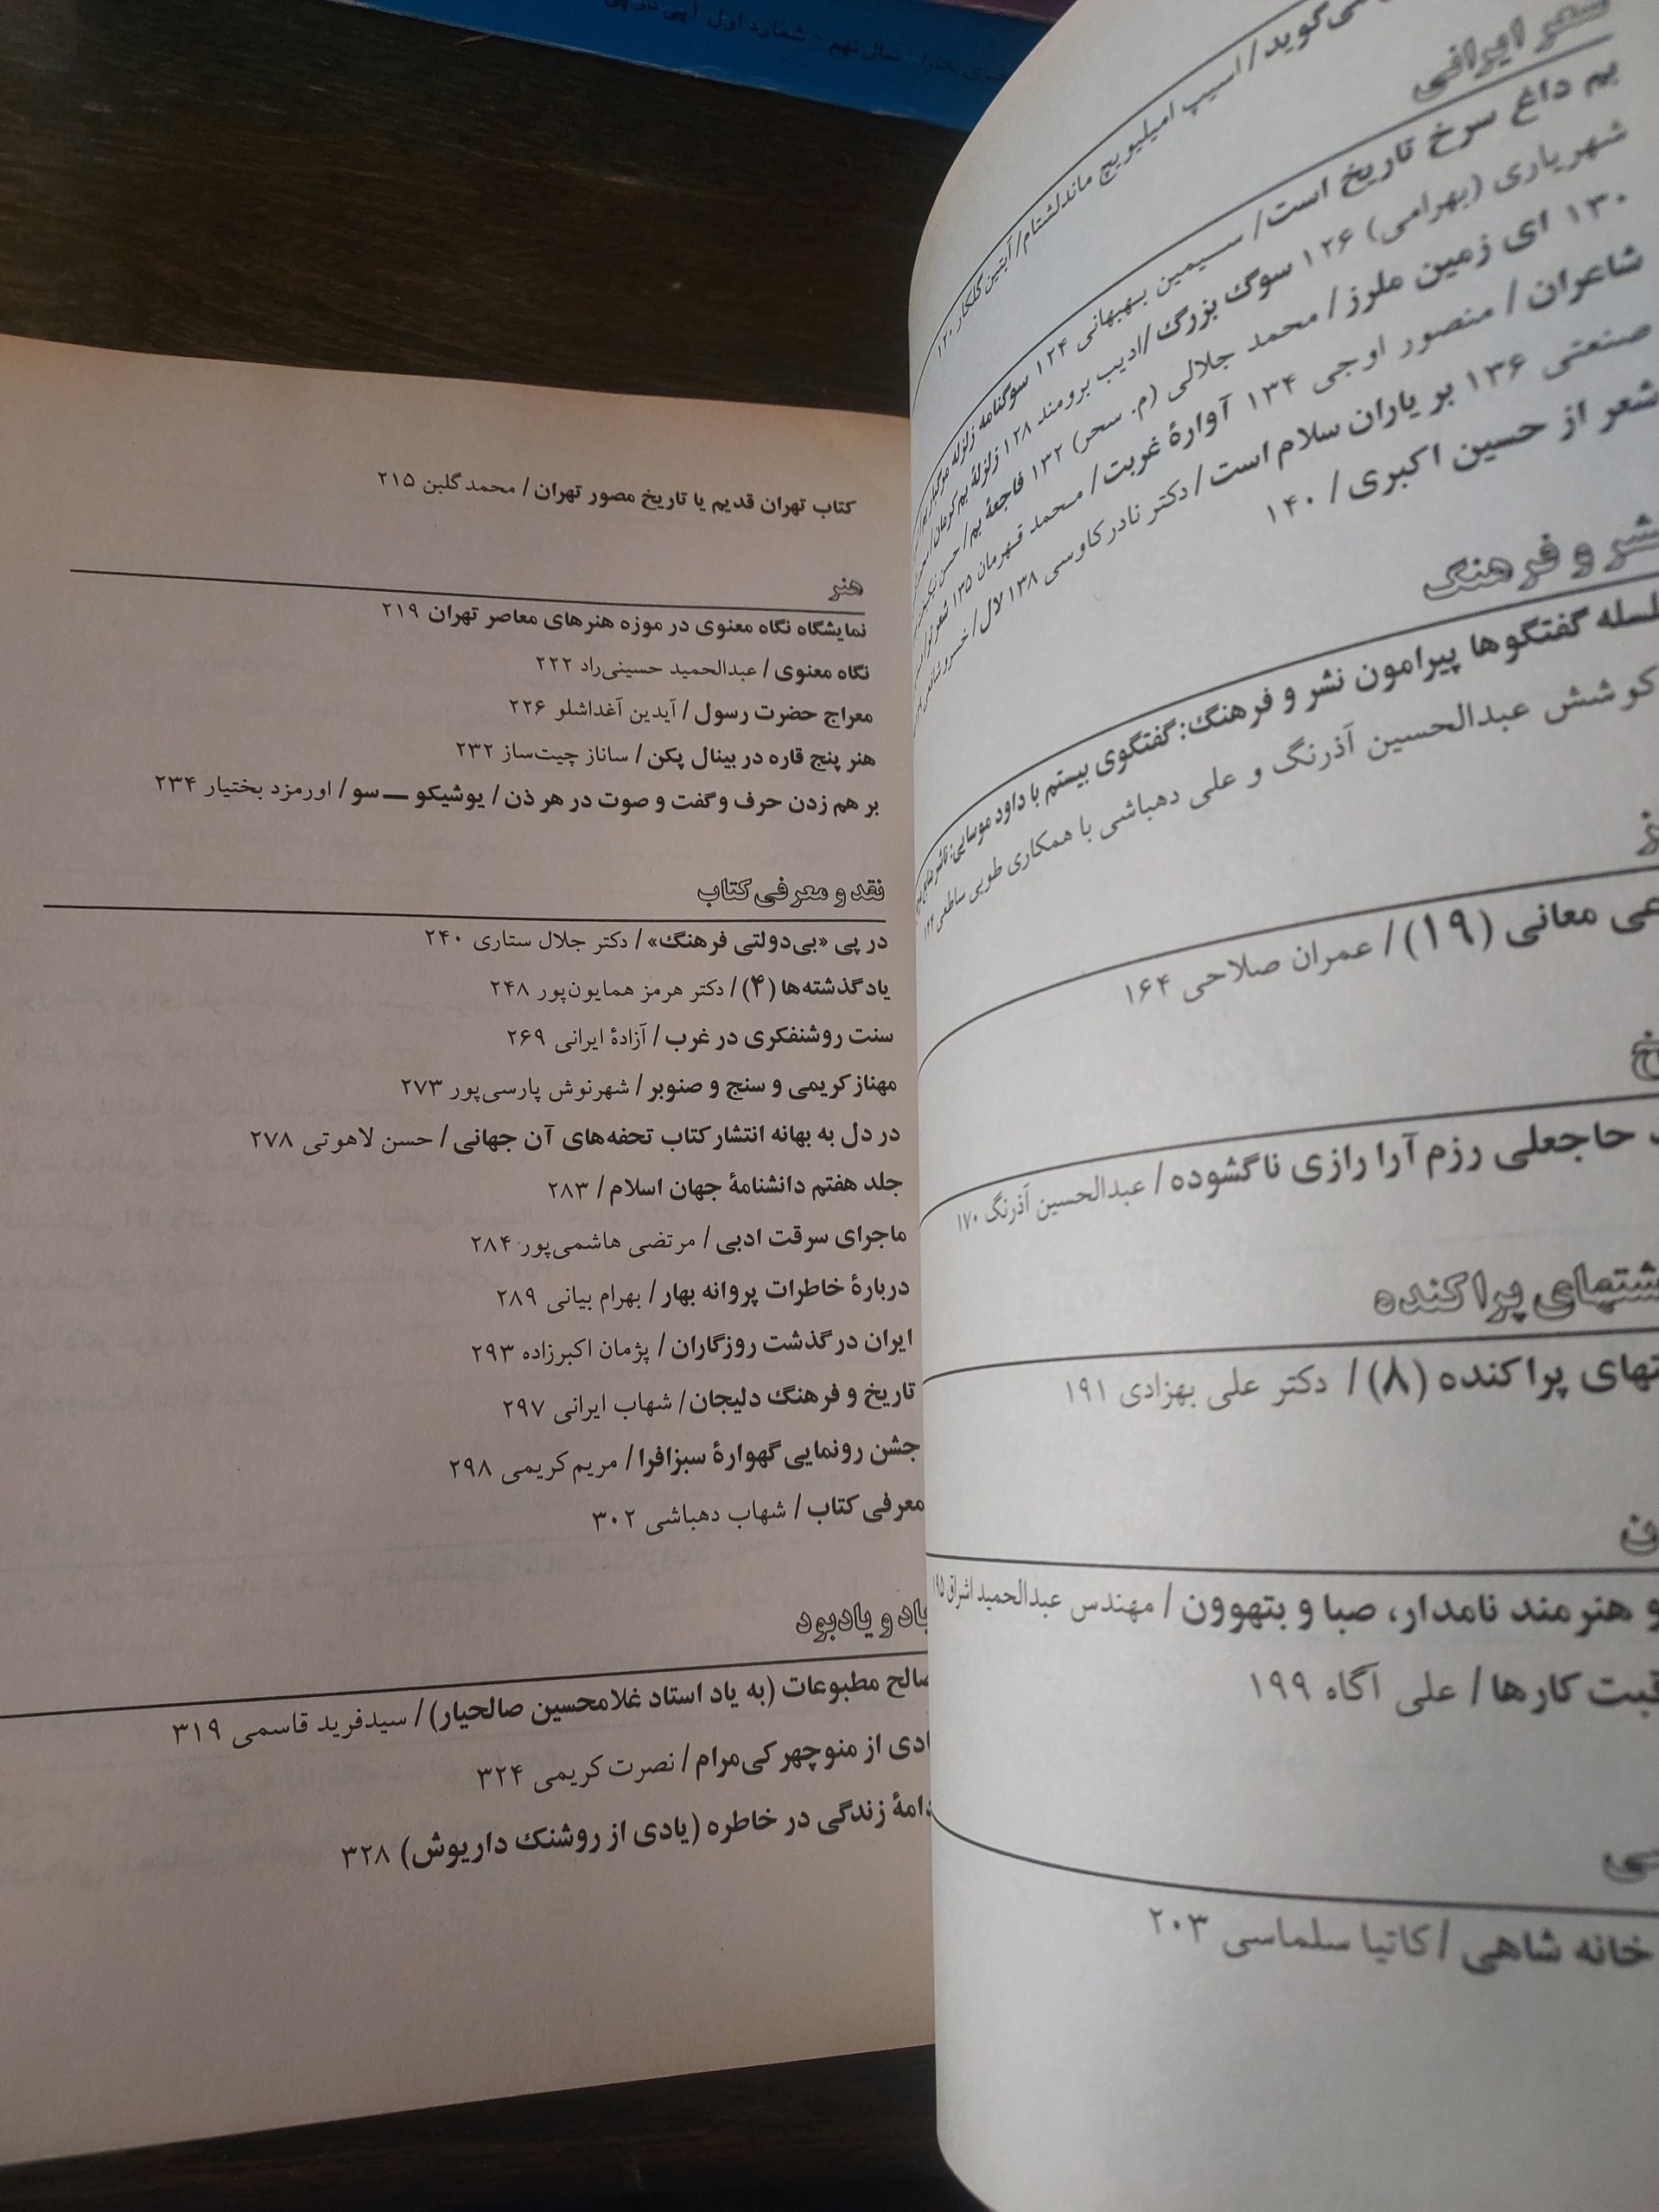 سال نهم - شماره اول (پی در پی
می‌گوید / اسیپ امیلیویچ ماندلشتام / آبتین گلکار ۱۲۰
شعر ایرانی
بم داغ سرخ تاریخ است / سیمین بهبهانی ۱۲۴ سوگنامه زلزله
شهریاری (بهرامی) ۱۲۶ سوگ بزرگ / ادیب برومند ۱۲۸ زلزلهٔ بم کرمان /
۱۳۰ ای زمین ملرز / محمد جلالی (م. سحر) ۱۳۲ فاجعهٔ بم / حسن
شاعران / منصور اوجی ۱۳۴ آوارهٔ غربت / محمد قهرمان ۱۳۵
صنعتی ۱۳۶ بر یاران سلام است / دکتر نادر کاوسی ۱۳۸ لال / خسرو
شعر از حسین اکبری / ۱۴۰
نشر و فرهنگ
سلسله گفتگوها پیرامون نشر و فرهنگ: گفتگوی بیستم با داود موسایی:
کوشش عبدالحسین آذرنگ و علی دهباشی با همکاری طوبی ساطعی
عی معانی (۱۹) / عمران صلاحی ۱۶۴
حاجعلی رزم آرا رازی ناگشوده / عبدالحسین آذرنگ ۱۷۰
شتهای پراکنده
تهای پراکنده (۸) / دکتر علی بهزادی ۱۹۱
و هنرمند نامدار، صبا و بتهوون / مهندس عبدالحمید اشراق ۱۹۵
قبت کارها / علی آگاه ۱۹۹
خانه شاهی / کاتیا سلماسی ۲۰۳
کتاب تهران قدیم یا تاریخ مصور تهران / محمد گلبن ۲۱۵
هنر
نمایشگاه نگاه معنوی در موزه هنرهای معاصر تهران ۲۱۹
نگاه معنوی / عبدالحمید حسینی‌راد ۲۲۲
معراج حضرت رسول / آیدین آغداشلو ۲۲۶
هنر پنج قاره در بینال پکن / ساناز چیت‌ساز ۲۳۲
بر هم زدن حرف و گفت و صوت در هر ذن / یوشیکو — سو / اورمزد بختیار ۲۳۴
نقد و معرفی کتاب
در پی «بی‌دولتی فرهنگ» / دکتر جلال ستاری ۲۴۰
یاد گذشته‌ها (۴) / دکتر هرمز همایون‌پور ۲۴۸
سنت روشنفکری در غرب / آزادهٔ ایرانی ۲۶۹
مهناز کریمی و سنج و صنوبر / شهرنوش پارسی‌پور ۲۷۳
در دل به بهانه انتشار کتاب تحفه‌های آن جهانی / حسن لاهوتی ۲۷۸
جلد هفتم دانشنامهٔ جهان اسلام / ۲۸۳
ماجرای سرقت ادبی / مرتضی هاشمی‌پور ۲۸۴
دربارهٔ خاطرات پروانه بهار / بهرام بیانی ۲۸۹
ایران در گذشت روزگاران / پژمان اکبرزاده ۲۹۳
تاریخ و فرهنگ دلیجان / شهاب ایرانی ۲۹۷
جشن رونمایی گهوارهٔ سبزافرا / مریم کریمی ۲۹۸
معرفی کتاب / شهاب دهباشی ۳۰۲
یاد و یادبود
صالح مطبوعات (به یاد استاد غلامحسین صالحیار) / سیدفرید قاسمی ۳۱۹
ادی از منوچهر کی‌مرام / نصرت کریمی ۳۲۴
دامهٔ زندگی در خاطره (یادی از روشنک داریوش) ۳۲۸